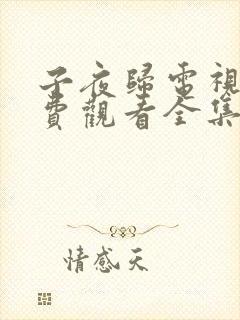 子夜歸電視
費觀看全集
情感天